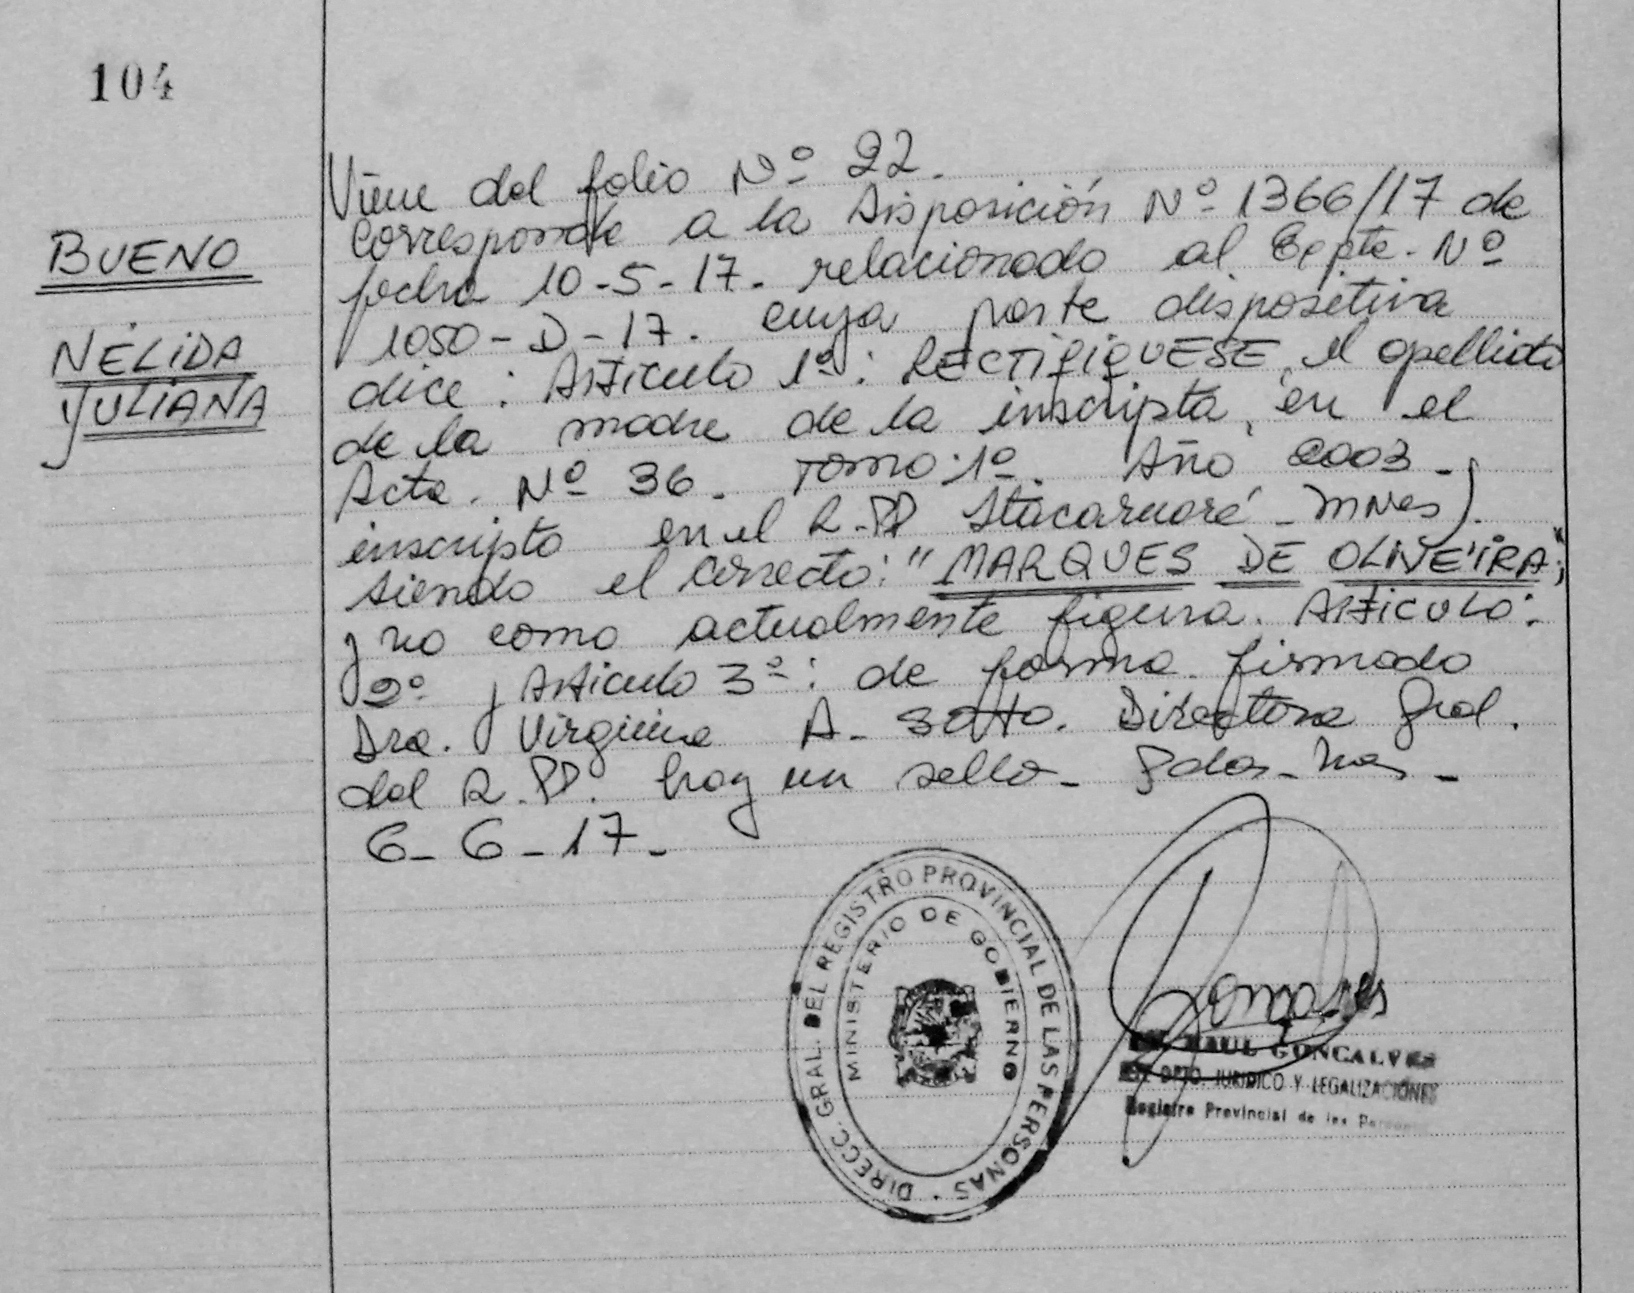 104
BUENO
NÉLIDA
JULIANA
Viene del folio Nº 22.
Corresponde a la Disposición Nº 1366/17 de
fecha 10-5-17. relacionado al Expte. Nº
1050-D-17. cuya parte dispositiva
dice: Articulo 1º: RECTIFIQUESE, el apellido
de la madre de la inscripta, en el
Acta. Nº 36. Tomo: 1º. Año 2003-
inscripto en el R.PP Itacaruaré - Mnes).
siendo el correcto: "MARQUES DE OLIVEIRA";
y no como actualmente figura. Articulo:
2º y Articulo 3º: de forma. firmado
Dra. Virginia A. Sotto. Directora Gral.
del R.PP. hay un sello-
6-6-17-
DIRECC. GRAL. DEL REGISTRO PROVINCIAL DE LAS PERSONAS
MINISTERIO DE GOBIERNO
RAUL GONCALVES
DPTO. JURIDICO Y LEGALIZACIONES
Registro Provincial de las Personas